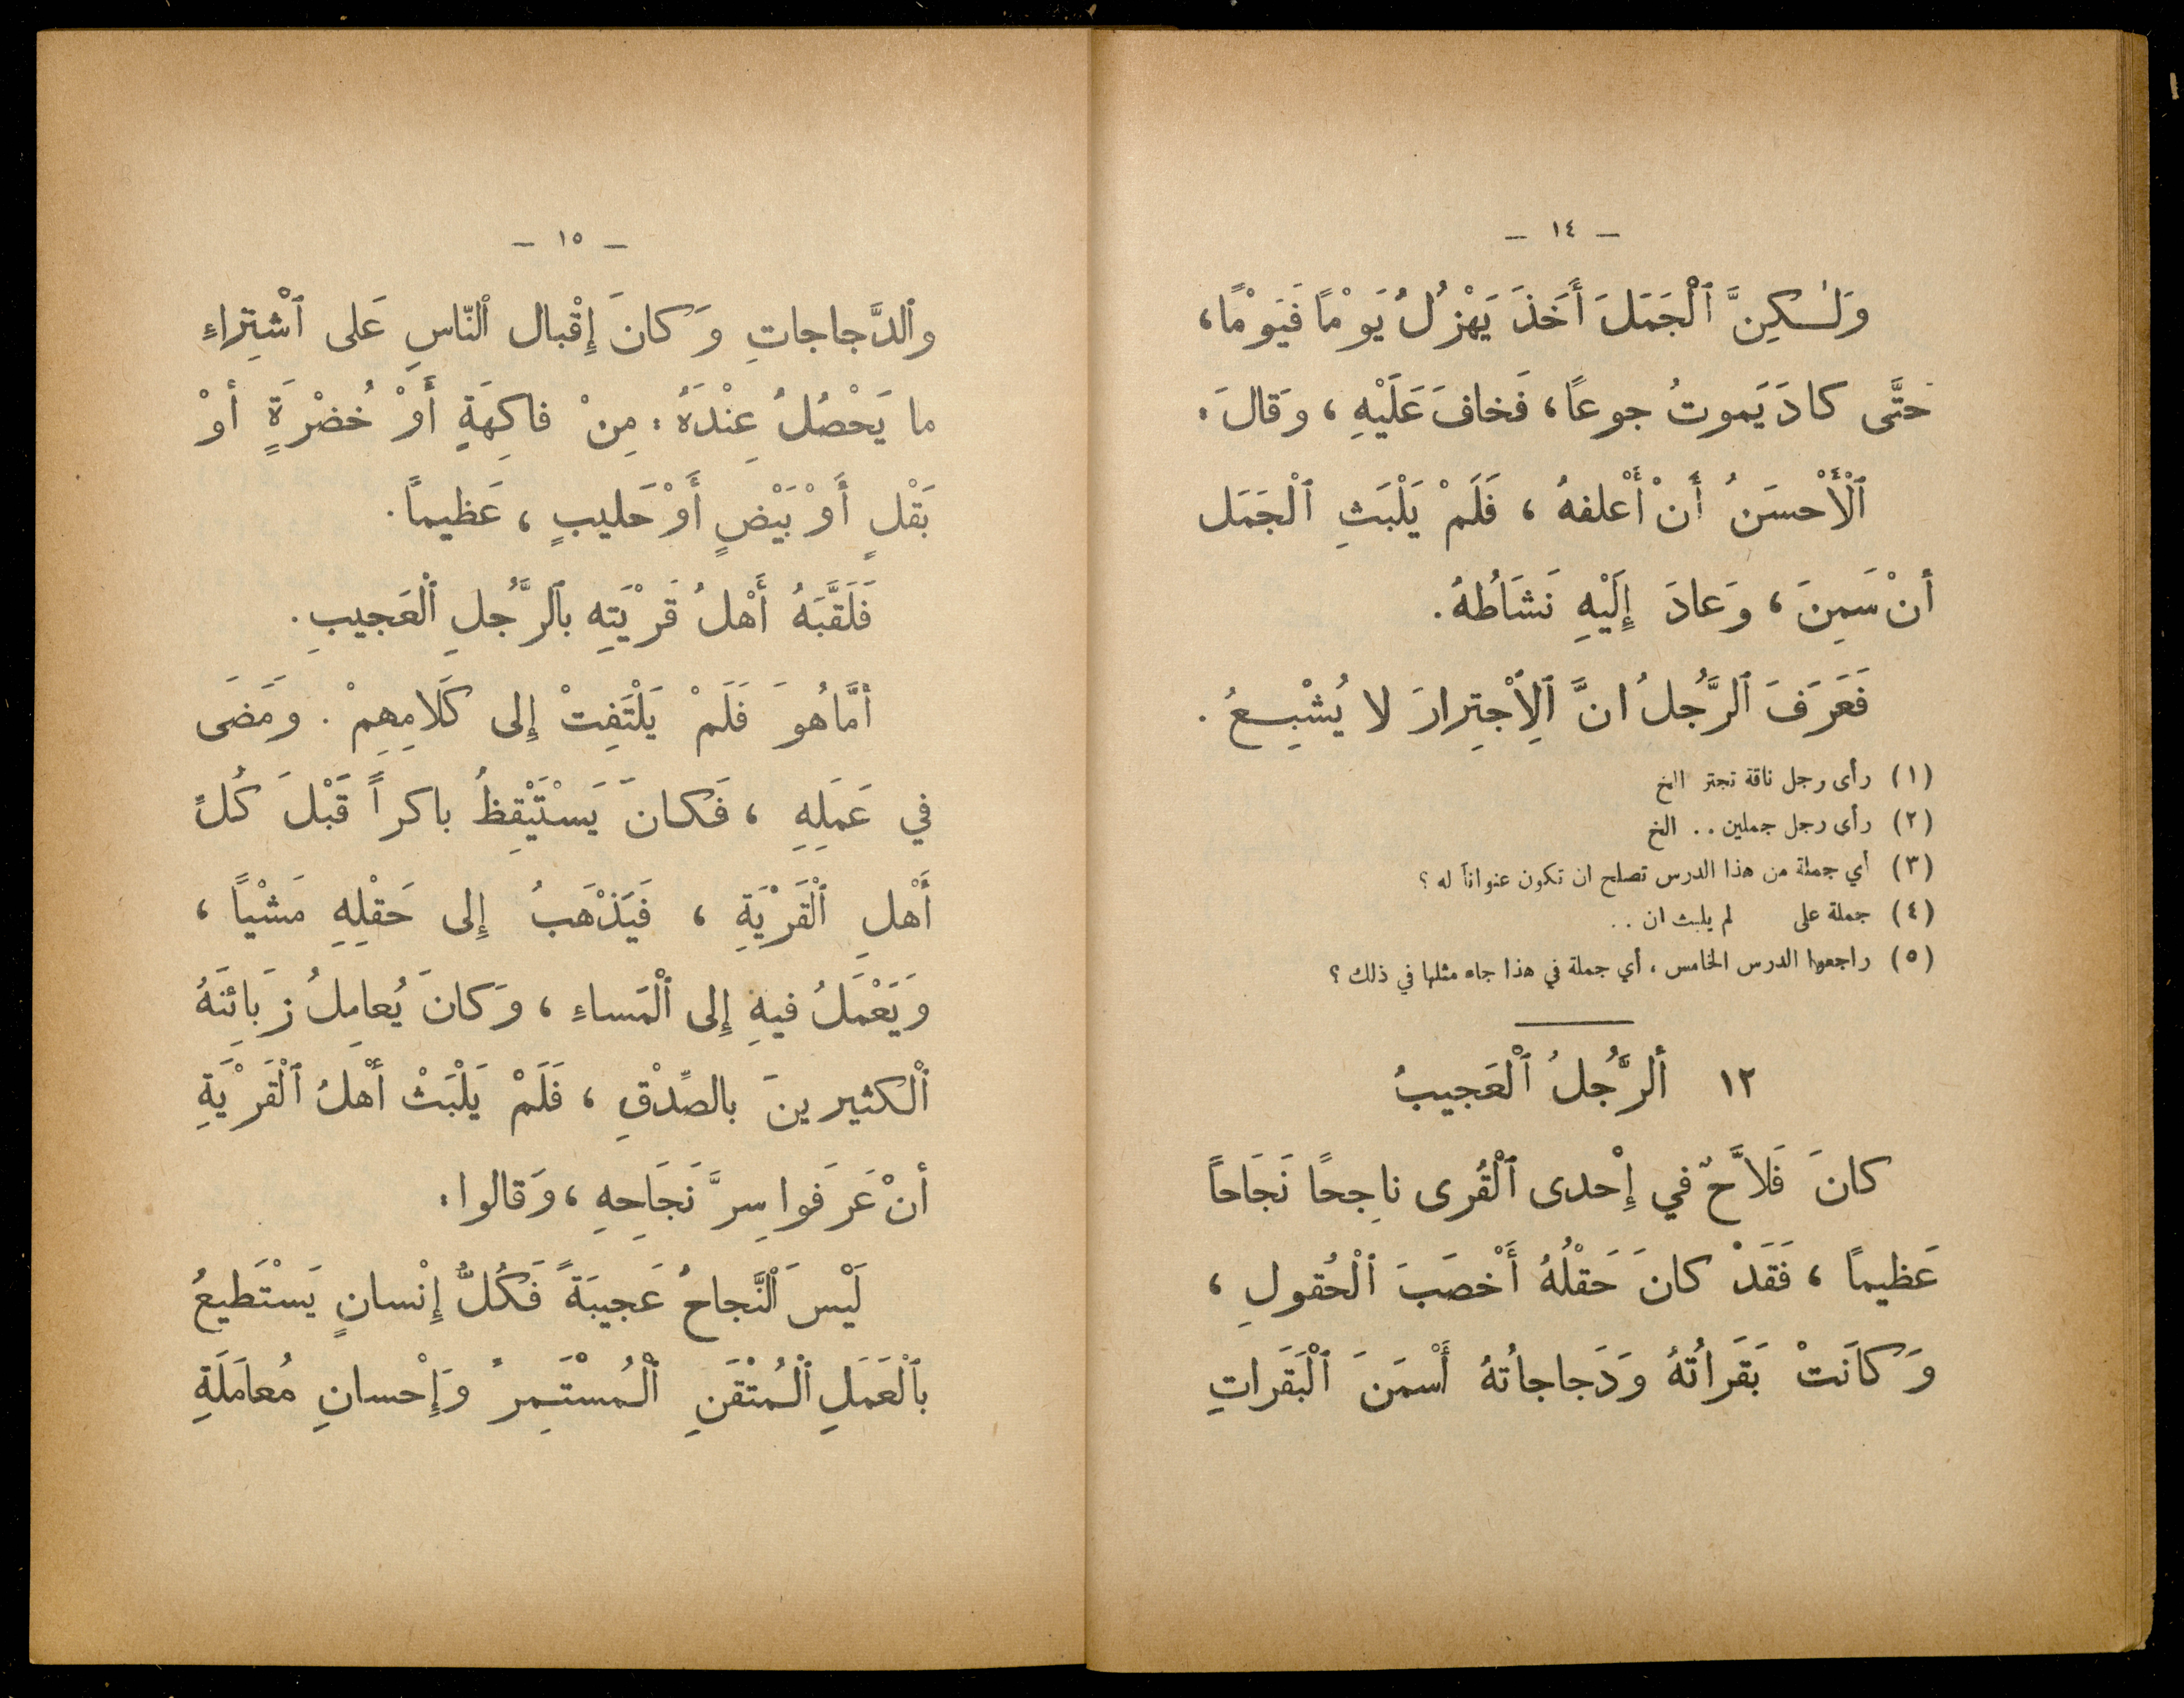 — ١٤ —
وَلٰكِنَّ ٱلْجَمَلَ أَخَذَ يَهْزُلُ يَوْمًا فَيَوْمًا،
حَتَّى كادَ يَموتُ جوعًا، فَخافَ عَلَيْهِ، وَقالَ:
ٱلْأَحْسَنُ أَنْ أَعْلفهُ، فَلَمْ يَلْبَثِ ٱلْجَمَل
أنْ سَمِنَ، وَعادَ إِلَيْهِ نَشَاطُهُ.
فَعَرَفَ ٱلرَّجُلُ انَّ ٱلِاجْتِرارَ لا يُشْبِعُ.
(١) رأى رجل ناقة تجتر الخ
(٢) رأى رجل جملين .. الخ
(٣) أي جملة من هذا الدرس تصلح ان تكون عنواناً له ؟
(٤) جملة على لم يلبث ان ..
(٥) راجعوا الدرس الخامس، أي جملة في هذا جاء مثلها في ذلك ؟
١٢ ألرَّجُلُ ٱلْعَجيبُ
كانَ فَلاَّحٌ في إِحْدى ٱلْقُرى ناجِحًا نَجَاحًا
عَظيمًا، فَقَدْ كانَ حَقْلُهُ أَخْصَبَ ٱلْحُقولِ،
وَكاَنَتْ بَقَراتُهُ وَدَجاجاتُهُ أَسْمَنَ ٱلْبَقَراتِ
— ١٥ —
وٱلدَّجاجاتِ وَكانَ إِقْبال ٱلنّاسِ عَلى ٱشْتِراءِ
ما يَحْصُلُ عِنْدَهُ: مِنْ فاكِهَةٍ أَوْ خُضْرَةٍ أوْ
بَقْلٍ أَوْ بَيْضٍ أَوْ حَليبٍ، عَظيماً.
فَلَقَّبَهُ أَهْلُ قَرْيَتِهِ بٱلرَّجُلِ ٱلْعَجيبِ.
أمَّا هُوَ فَلَمْ يَلْتَفِتْ إِلى كَلامِهِمْ. وَمَضَى
في عَمَلِهِ، فَكانَ يَسْتَيْقِظُ باكراً قَبْلَ كُلِّ
أَهْلِ ٱلْقَرْيَةِ، فَيَذْهَبُ إِلى حَقْلِهِ مَشْياً،
وَيَعْمَلُ فيهِ إِلى ٱلْمَساءِ، وَكانَ يُعامِلُ زَبَائِنَهُ
ٱلْكثيرينَ بالصِّدْقِ، فَلَمْ يَلْبَثْ أهْلُ ٱلْقَرْيَةِ
أنْ عَرَفوا سِرَّ نَجَاحِهِ، وَقالوا:
لَيْسَ ٱلنَّجاحُ عَجيبَةً فَكُلُّ إِنْسانٍ يَسْتَطيعُ
بٱلْعَمَلِ ٱلْمُتْقَنِ ٱلْمُسْتَمِرِّ وَإِحْسانِ مُعاَمَلَةِ